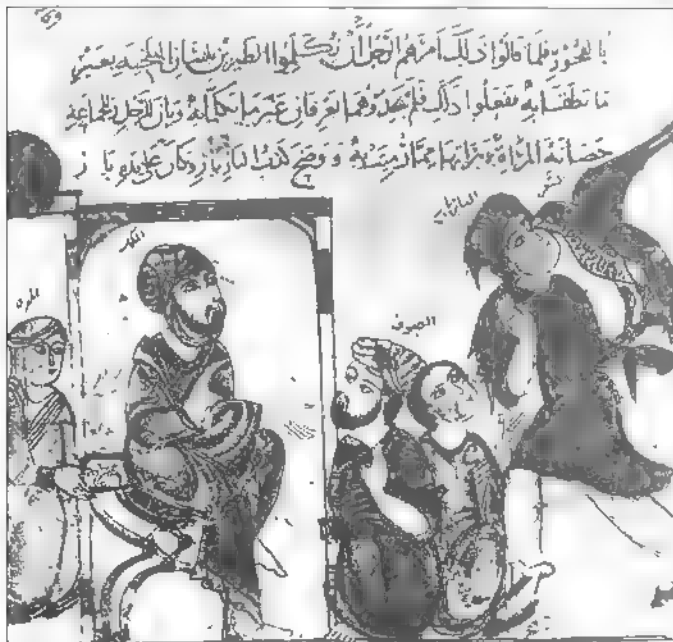 بالفجور فلما قالوا ذلك امرهم الرجل ان يكلموا الطيرين بلسان البلخيه بغير
ما نطقتا به ففعلوا ذلك فلم يجدوهما تعرفان غير ما تكلما به وبان للرجل وللجماعه
حصانة المراة وبراتها مما رميت به ووضح كذب البازيار وكان على يده باز
البازيار
الضيوف
المراة